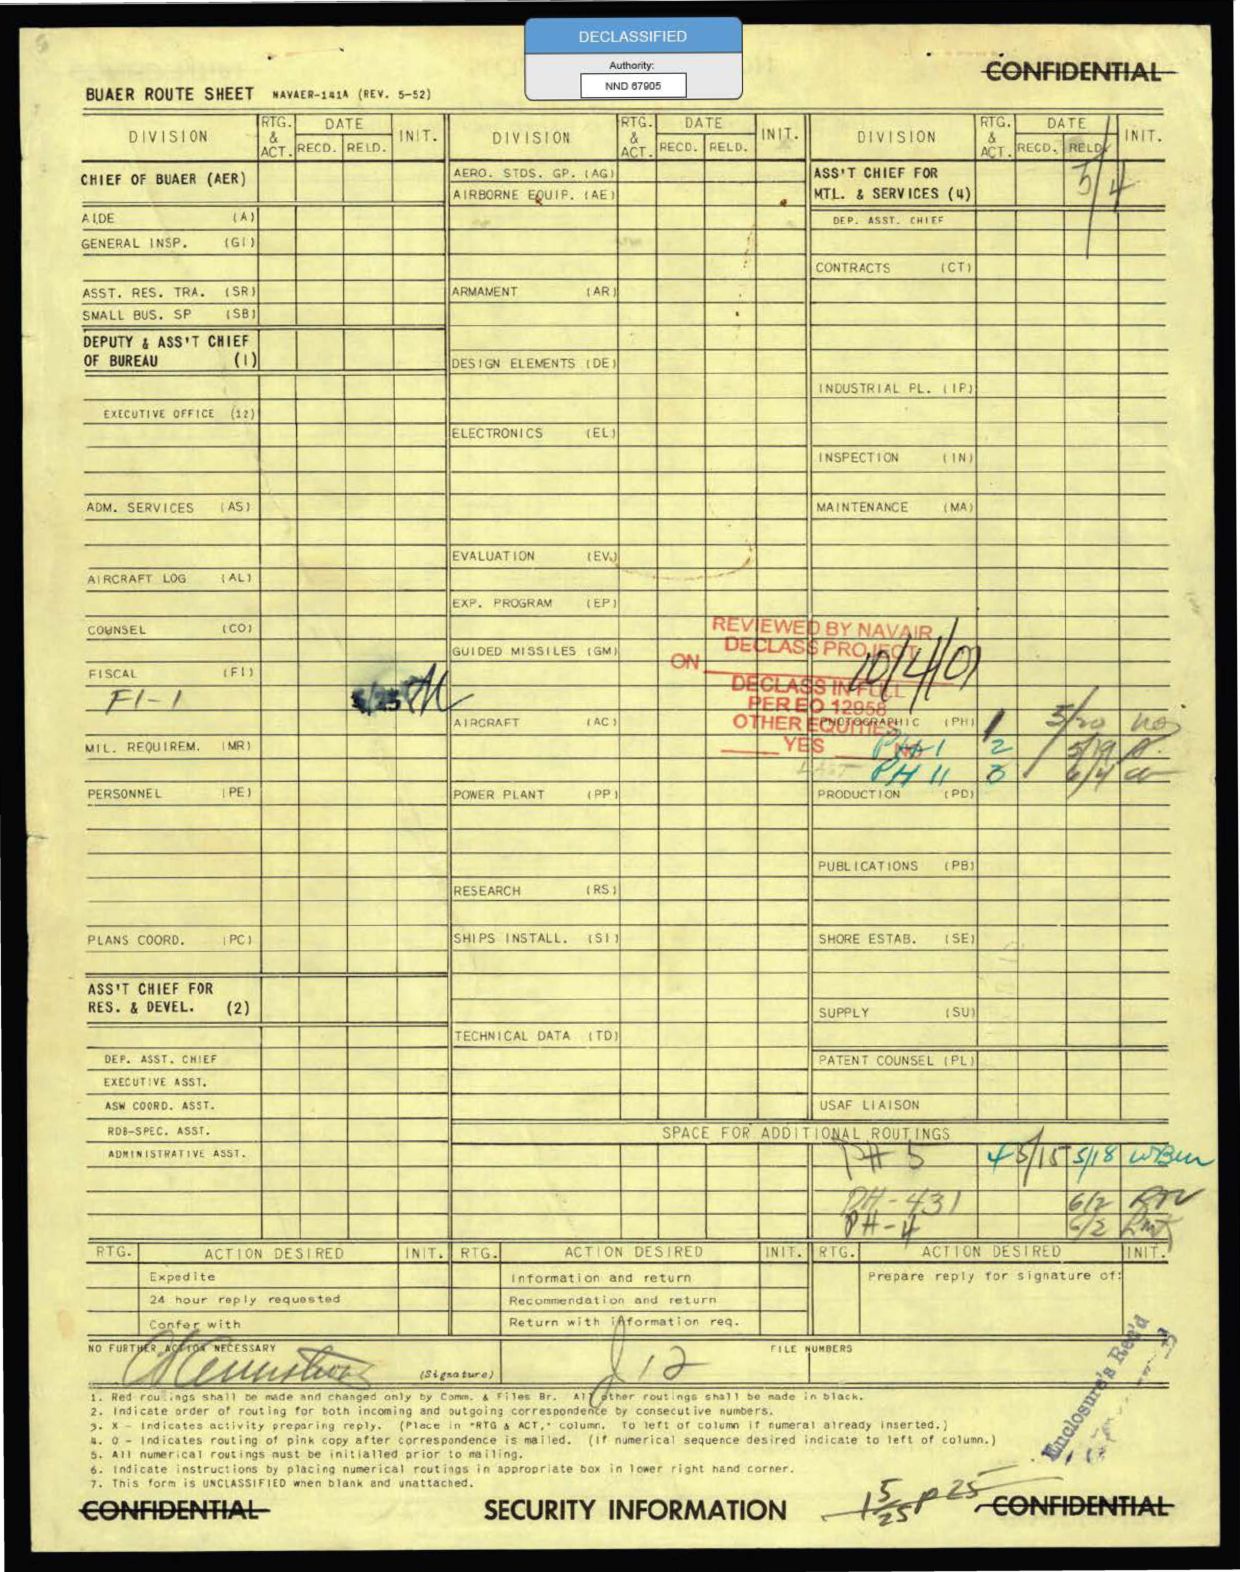 DECLASSIFIED
Authority:
NND 67905
CONFIDENTIAL
BUAER ROUTE SHEET NAVAER-141A (REV. 5-52)
DIVISION RTG. & ACT. DATE RECD. RELD. INIT.
CHIEF OF BUAER (AER)
AIDE (A)
GENERAL INSP. (GI)
ASST. RES. TRA. (SR)
SMALL BUS. SP (SB)
DEPUTY & ASS'T CHIEF
OF BUREAU (1)
EXECUTIVE OFFICE (12)
ADM. SERVICES (AS)
AIRCRAFT LOG (AL)
COUNSEL (CO)
FISCAL (FI)
FI-1 5/25
MIL. REQUIREM. (MR)
PERSONNEL (PE)
PLANS COORD. (PC)
ASS'T CHIEF FOR
RES. & DEVEL. (2)
DEP. ASST. CHIEF
EXECUTIVE ASST.
ASW COORD. ASST.
RDB-SPEC. ASST.
ADMINISTRATIVE ASST.
DIVISION RTG. & ACT. DATE RECD. RELD. INIT.
AERO. STDS. GP. (AG)
AIRBORNE EQUIP. (AE)
ARMAMENT (AR)
DESIGN ELEMENTS (DE)
ELECTRONICS (EL)
EVALUATION (EV)
EXP. PROGRAM (EP)
GUIDED MISSILES (GM)
AIRCRAFT (AC)
POWER PLANT (PP)
RESEARCH (RS)
SHIPS INSTALL. (SI)
TECHNICAL DATA (TD)
DIVISION RTG. & ACT. DATE RECD. RELD. INIT.
ASS'T CHIEF FOR
MTL. & SERVICES (4) 5/4
DEP. ASST. CHIEF
CONTRACTS (CT)
INDUSTRIAL PL. (IP)
INSPECTION (IN)
MAINTENANCE (MA)
REVIEWED BY NAVAIR
DECLASS PROJECT
ON 10/4/01
DECLASS IN FULL
PER EO 12958
OTHER EQUITIES
YES NO
PHOTOGRAPHIC (PH) 1 5/20
PH-1 2 5/19
PH 11 3 6/4
PRODUCTION (PD)
PUBLICATIONS (PB)
SHORE ESTAB. (SE)
SUPPLY (SU)
PATENT COUNSEL (PL)
USAF LIAISON
SPACE FOR ADDITIONAL ROUTINGS
PH 5 4 5/15 5/18
PH-431 6/2
PH-4 6/2
RTG. ACTION DESIRED INIT. RTG. ACTION DESIRED INIT. RTG. ACTION DESIRED INIT.
Expedite Information and return Prepare reply for signature of:
24 hour reply requested Recommendation and return
Confer with Return with information req.
NO FURTHER ACTION NECESSARY FILE NUMBERS
(Signature) 12
1. Red routings shall be made and changed only by Comm. & Files Br. All other routings shall be made in black.
2. Indicate order of routing for both incoming and outgoing correspondence by consecutive numbers.
3. X - Indicates activity preparing reply. (Place in "RTG & ACT," column. To left of column if numeral already inserted.)
4. O - Indicates routing of pink copy after correspondence is mailed. (If numerical sequence desired indicate to left of column.)
5. All numerical routings must be initialled prior to mailing.
6. Indicate instructions by placing numerical routings in appropriate box in lower right hand corner.
7. This form is UNCLASSIFIED when blank and unattached.
Enclosure's Rec'd
CONFIDENTIAL SECURITY INFORMATION CONFIDENTIAL